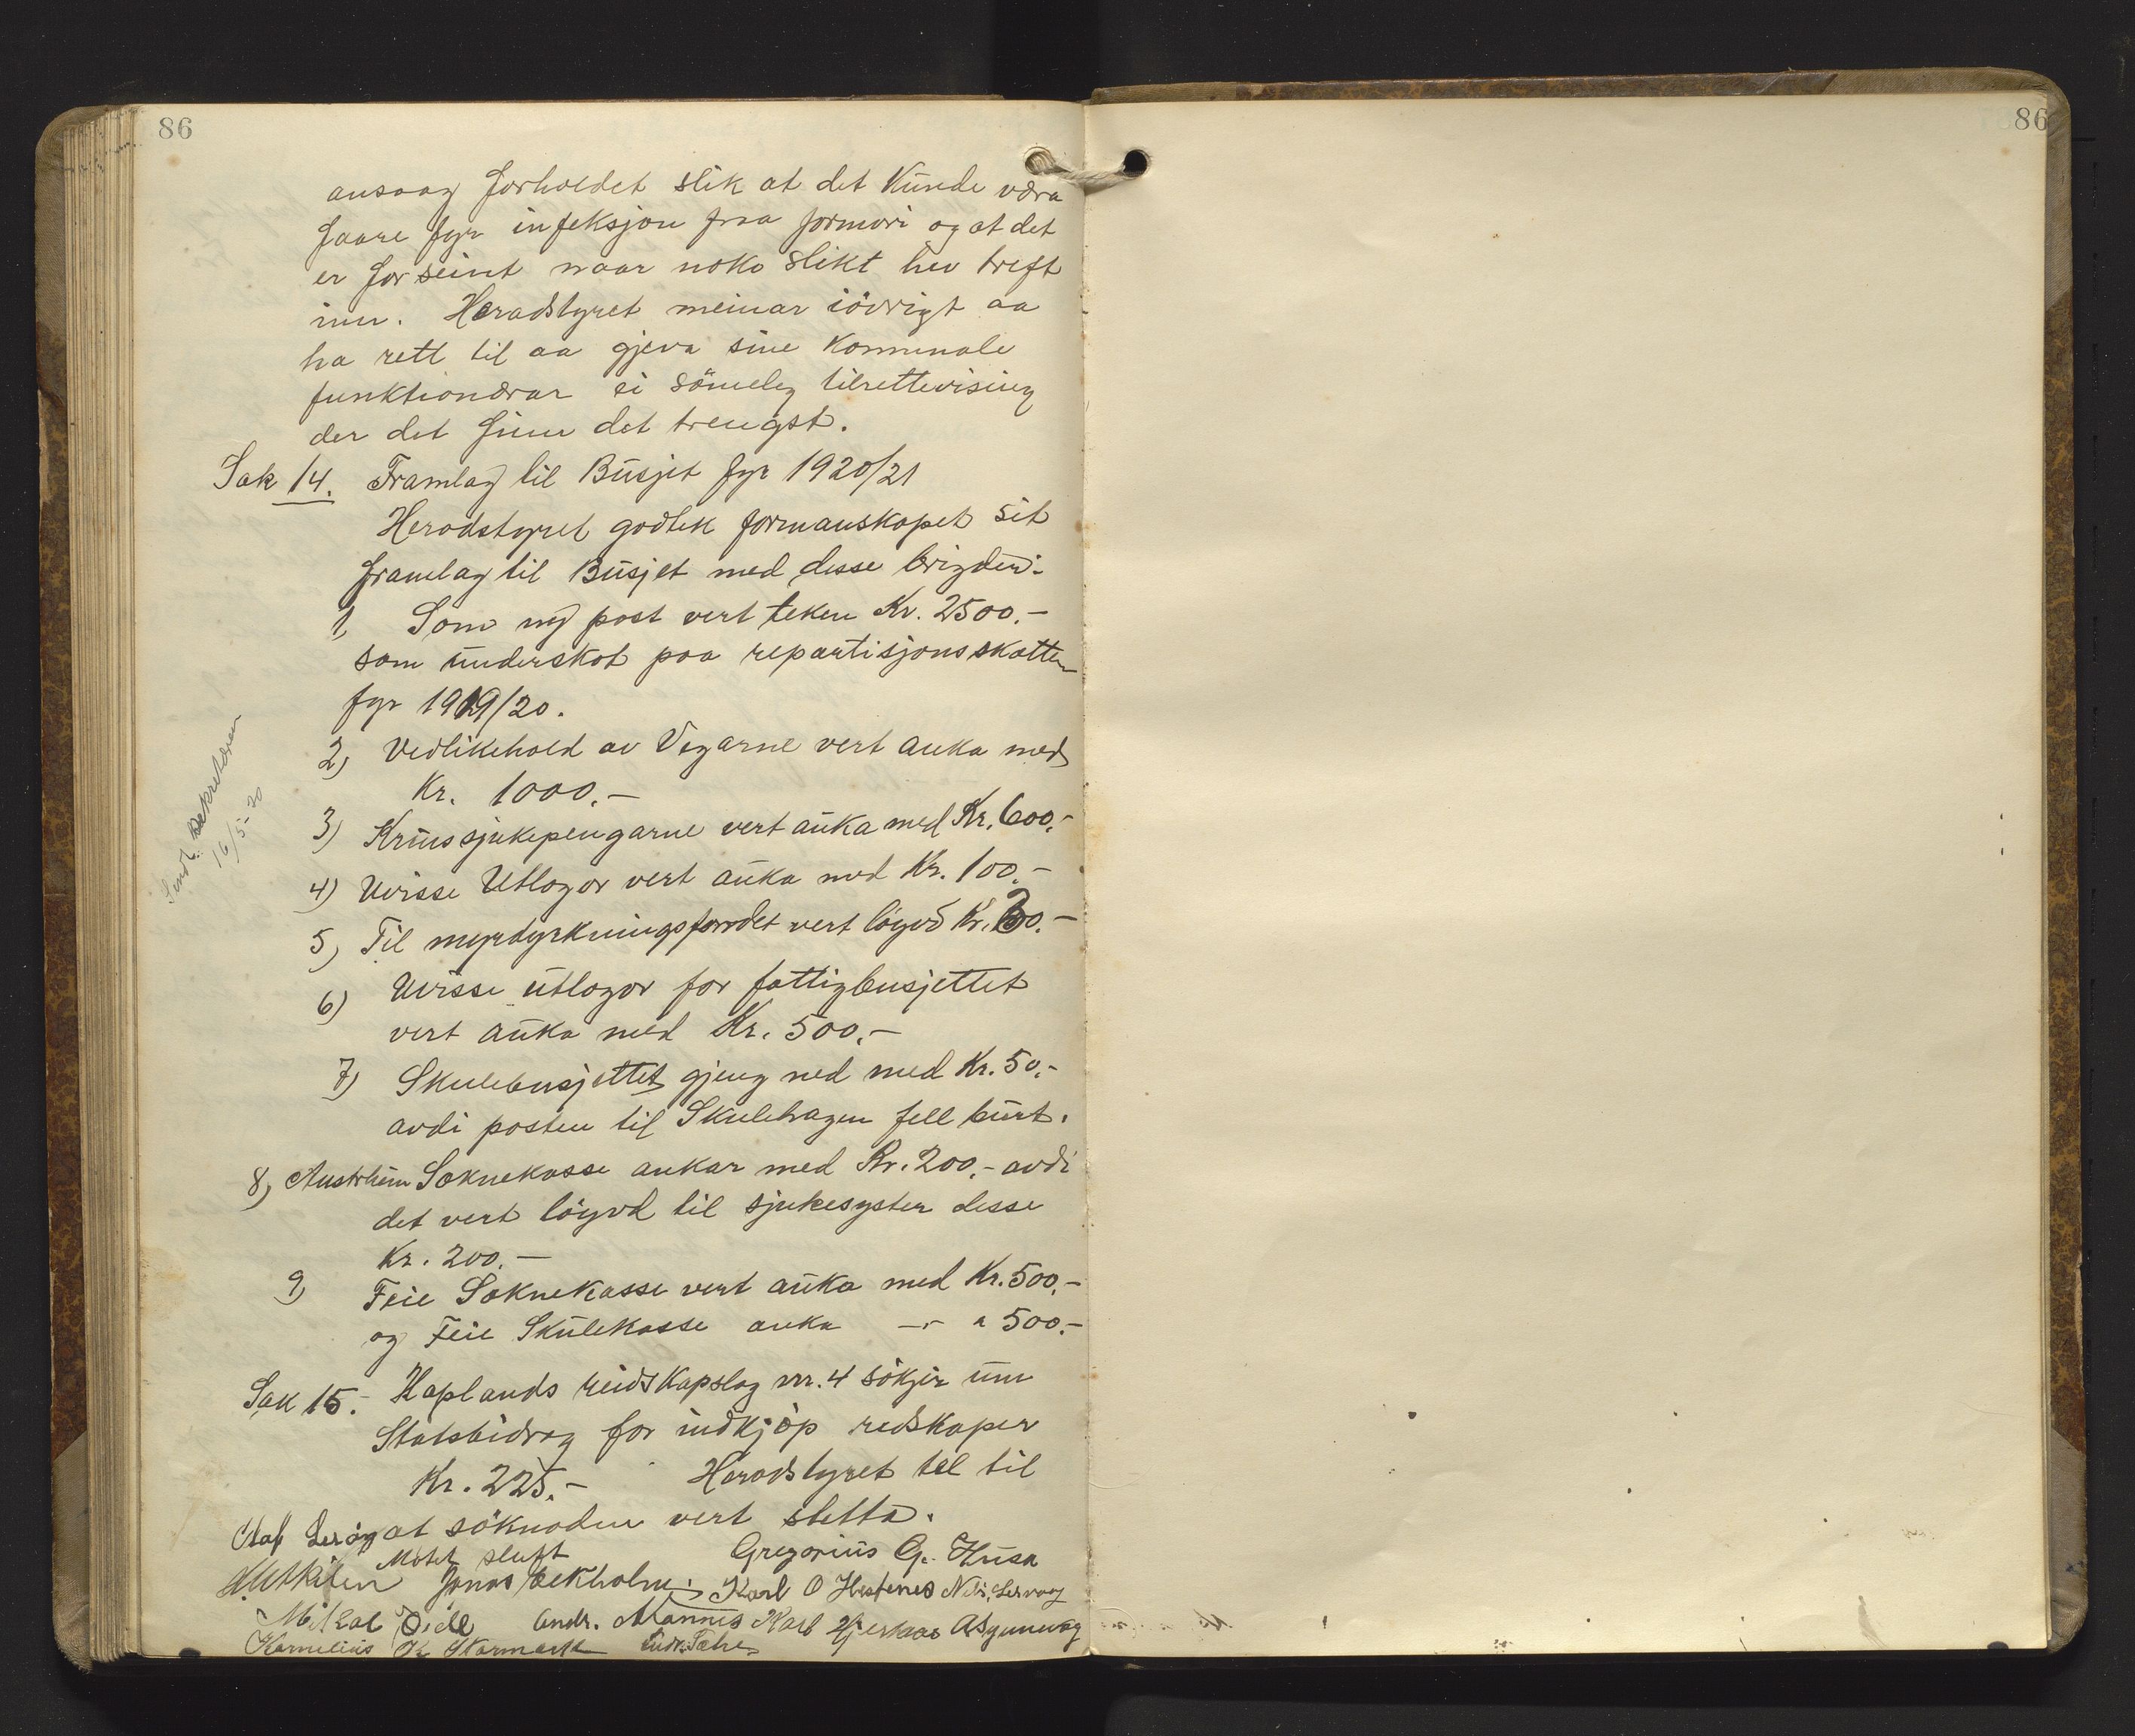 86
ansaag forholdet slik at det kunde væra
faare fyr infeksjon fraa formori og at det
er for seint naar noko slikt hev treft
inn. Heradstyret meinar iövrigt aa
ha rett til aa gjeva sine kommunale
funktionærar ei sömeleg tilrettevising
der det finn det trengst.
Sak 14. Framlag til Busjet fyr 1920/21
Heradstyret godtek formanskapet sit
framlag til Busjet med desse brigder:
1, Som ny post vert teken Kr. 2500.-
som underskot paa repartisjonsskatten
fyr 1919/20.
2) Vedlikehold av Vegarne vert auka med
Kr. 1000.-
3) Krinssjukepengarne vert auka med Kr. 600.-
4) Uvisse Utlogor vert auka med Kr. 100.-
5) Til myrdyrkningsfondet vert löyvd Kr.
6) Uvisse utlogor for fattigbusjettet
vert auka med Kr. 500.-
7) Skulebusjettet gjeng ned med Kr. 50.-
avdi posten til Skulehagen fell burt.
8) Austrheim Soknekasse aukar med Kr. 200.- avdi
det vert löyvd til sjukesyster desse
Kr. 200.-
9) Feie Soknekasse vert auka med Kr. 500.-
og Feie Skulekasse auka -"- " 500.-
Sendt Sekretæren
16/5-20
Sak 15.- Kaplands reidskapslag nr. 4 sökjer um
Statsbidrag for indkjöp redskaper
Kr. 225.- Heradstyret tel til
at söknaden vert stetta.
Mötet sluft
Olaf Leröy
Gregorius G. Husa
Jonas Bekholm. Karl O Hestenes Nils Lervaag
Mikal Öide Andr. Mannes Karl Hjertaas
Kornelius K Hopmark
86